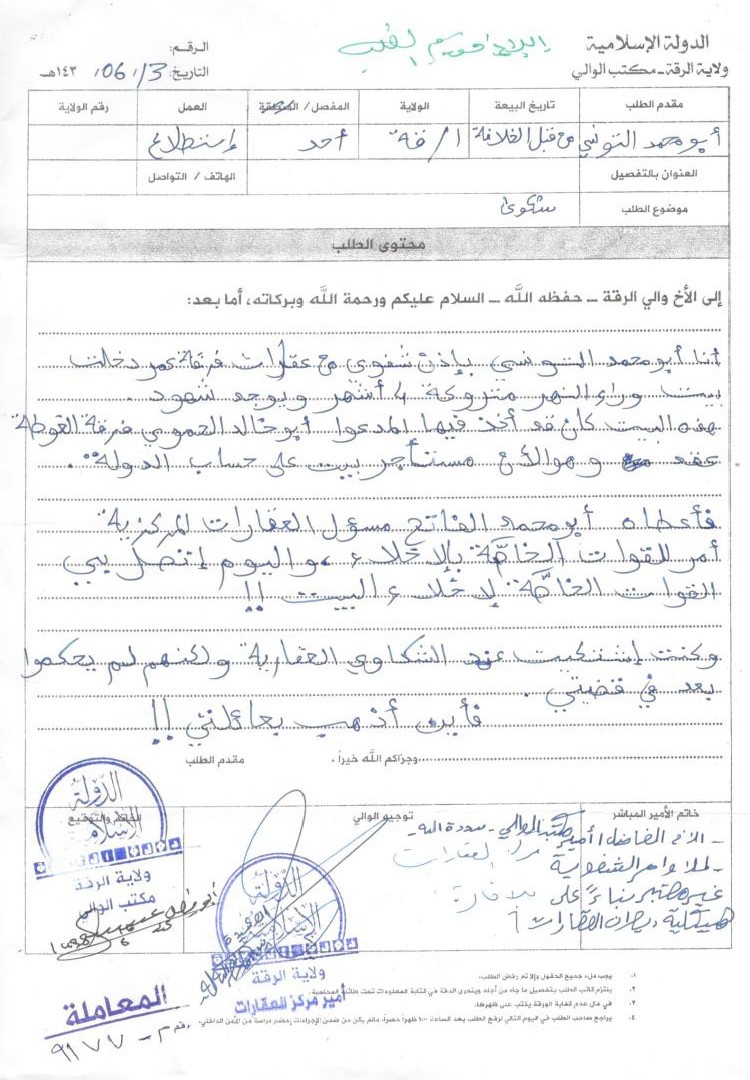 الدولة الإسلامية
ولاية الرقة - مكتب الوالي
الرقم:
التاريخ: 06/3/ ١٤٣هـ
مقدم الطلب
تاريخ البيعة
الولاية
المفصل / المنطقة
العمل
رقم الولاية
أبو محمد التونسي
من قبل الخلافة
الرقة
أحد
إستطلاع
العنوان بالتفصيل
الهاتف / التواصل
موضوع الطلب
شكوى
محتوى الطلب
إلى الأخ والي الرقة - حفظه الله - السلام عليكم ورحمة الله وبركاته، أما بعد:
أنا أبو محمد التونسي بإذن شفوي من عقارات فرقة عمر دخلت
بيت وراء النهر متروكة 4 أشهر ويوجد شهود.
هذه البيت كان قد أخذ فيها المدعوا أبو خالد الحموي فرقة الغوطة
عقد وهو الآن مستأجر بيت على حساب الدولة.
فأعطاه أبو محمد الفاتح مسؤل العقارات المركزية
أمر للقوات الخاصّة بالإخلاء، واليوم إتصل بي
القوات الخاصّة لإخلاء البيت !!
وكنت إشتكيت عند الشكاوي العقارية ولكنهم لم يحكموا
بعد في قضيتي.
فأين أذهب بعائلتي !!
وجزاكم الله خيراً.
مقدم الطلب
خاتم الأمير المباشر
توجيه الوالي
الخاتم والتوقيع
- الأخ الفاضل أمير مركز العقارات
مكتب الوالي - سدده الله -
- الأوامر الشفوية
غير معتبر بناءً على
هيكلية ديوان العقارات
الدولة
الإسلامية
ولاية الرقة
مكتب الوالي
الدولة
الإسلامية
ولاية الرقة
أمير مركز العقارات
المعاملة
رقم م - ٩١٧٧
١. يجب ملء جميع الحقول وإلا تم رفض الطلب.
٢. يلتزم كاتب الطلب بتفصيل ما جاء من أجله ويتحرى الدقة في كتابة المعلومات تحت طائلة المحاسبة.
٣. في حال عدم كفاية الورقة يكتب على ظهرها.
٤. يراجع صاحب الطلب في اليوم التالي لرفع الطلب بعد الساعة ١:٠٠ ظهراً حصراً، مالم يكن من ضمن الإجراءات